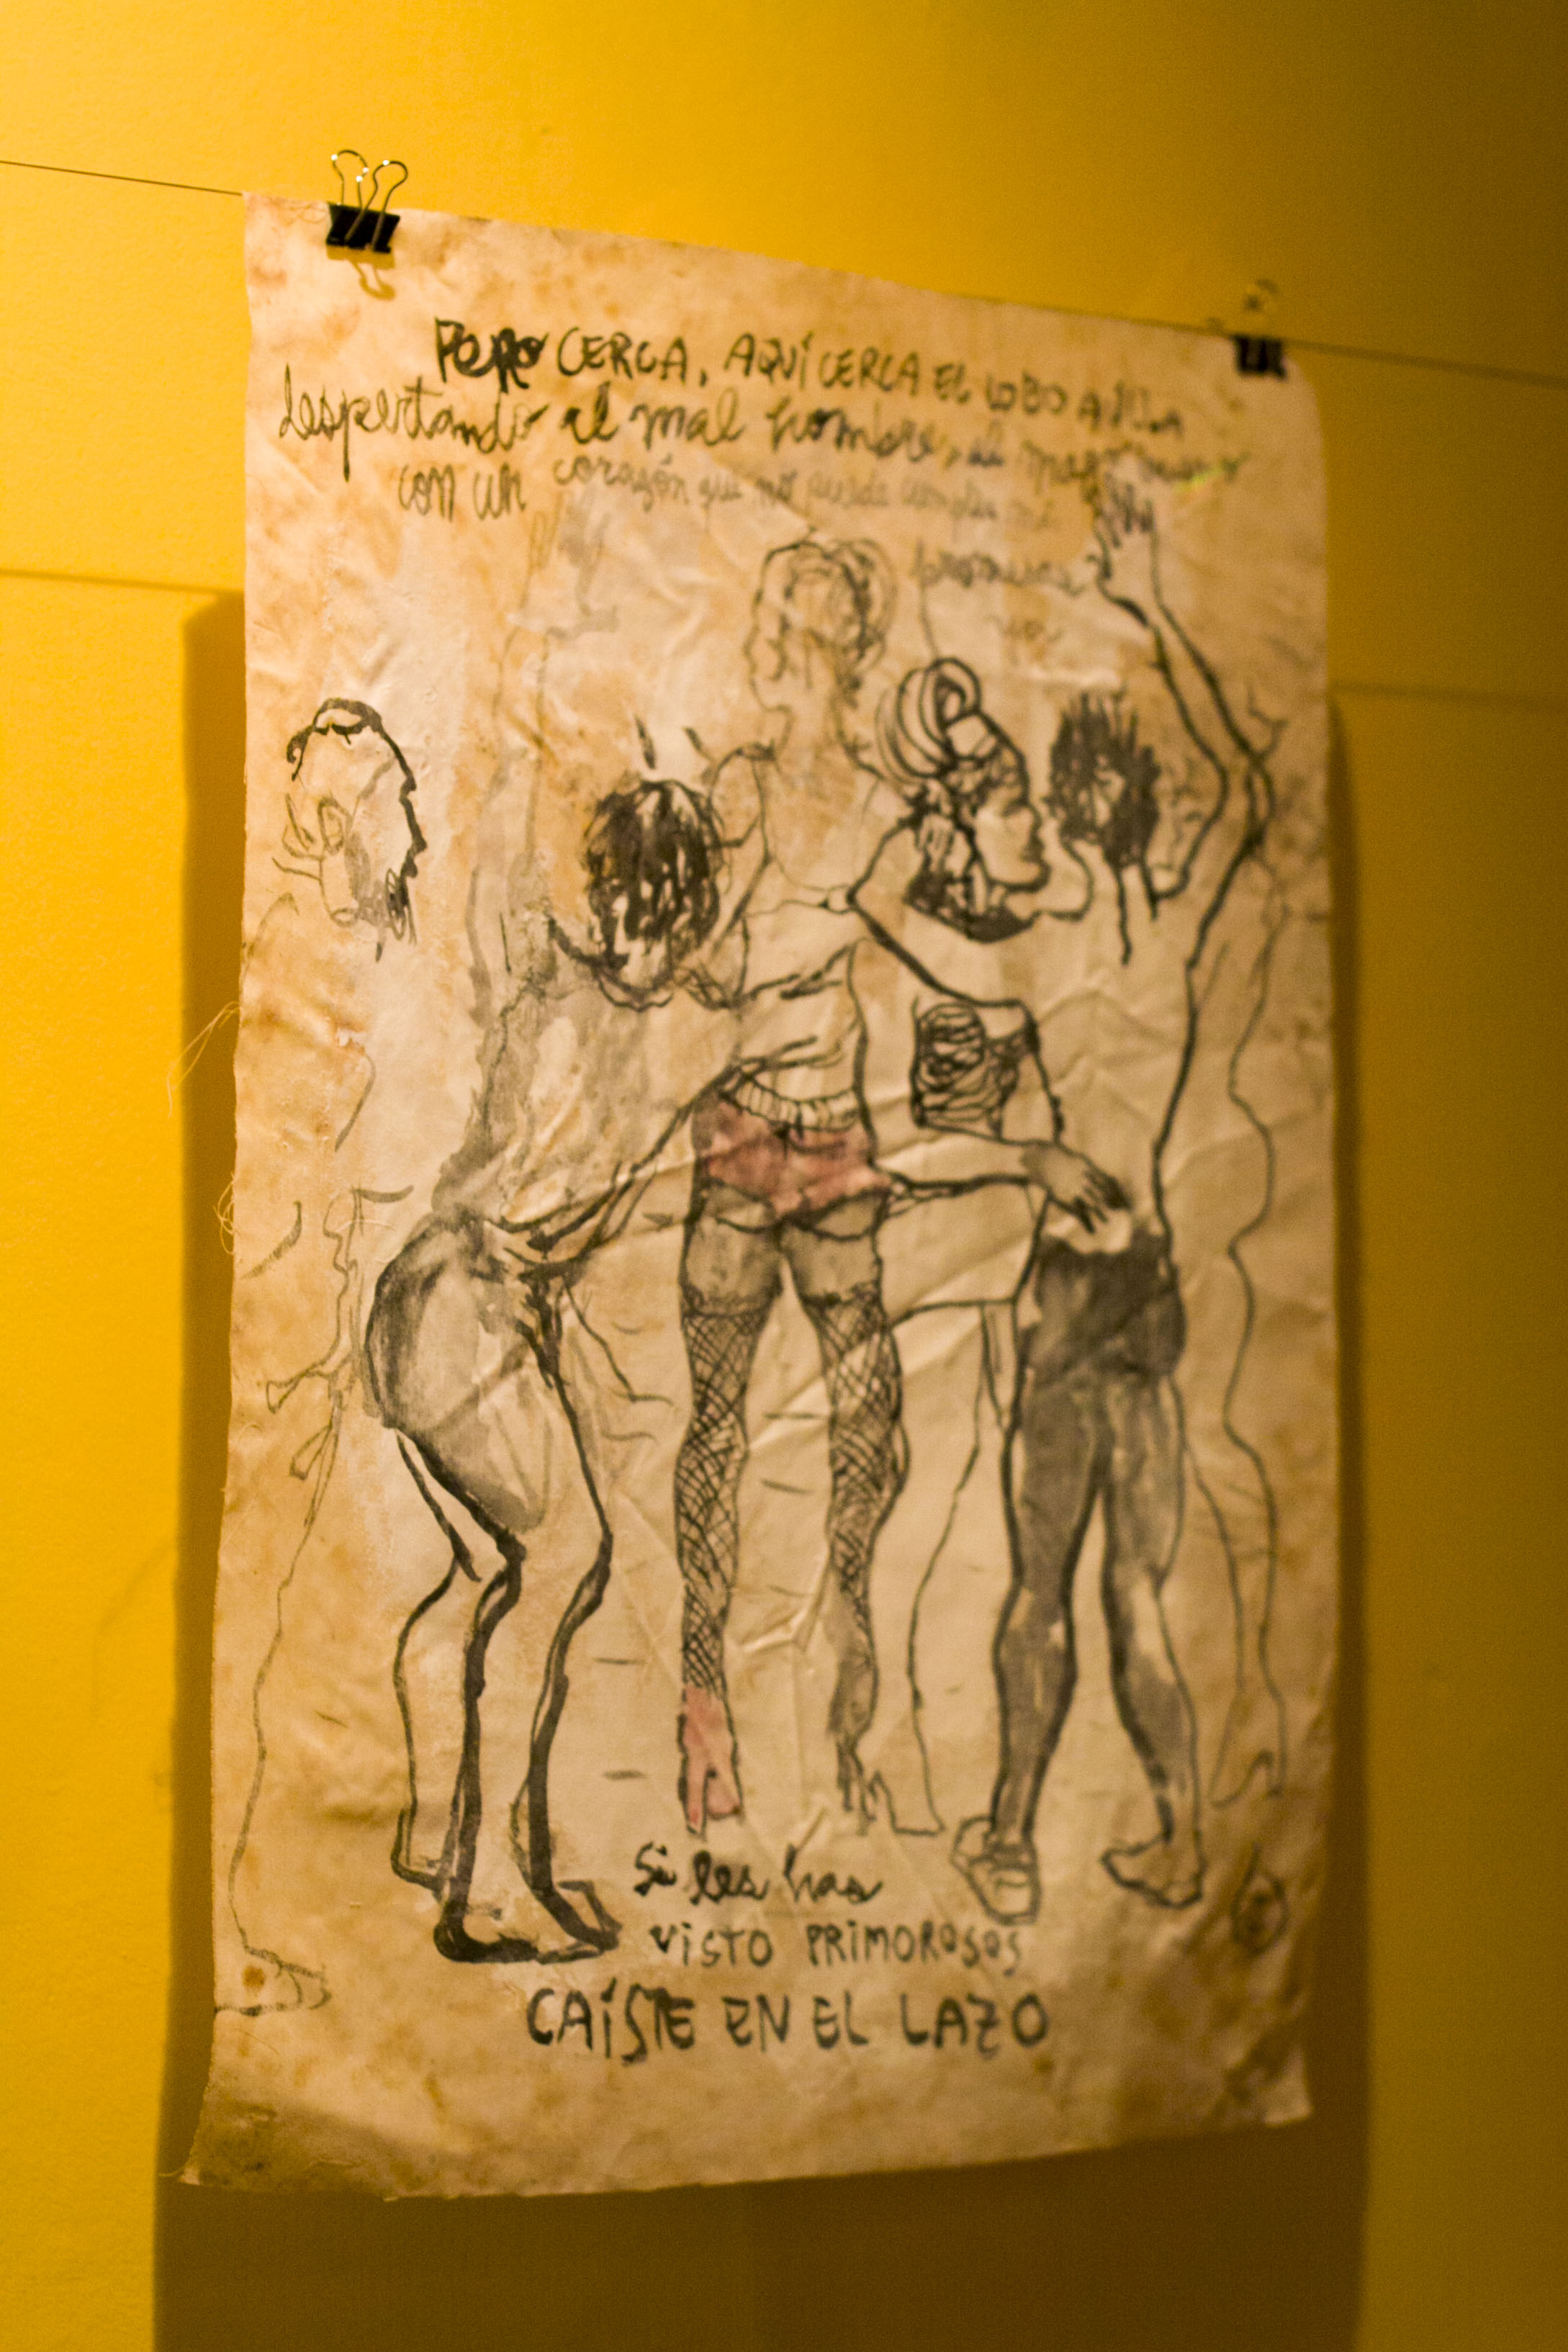 PERO CERCA, AQUÍ CERCA EL LOBO AULLA
despertando al mal hombre, al
con un corazón que no puede cumplir
promesas
Si les has
VISTO PRIMOROSOS
CAÍSTE EN EL LAZO